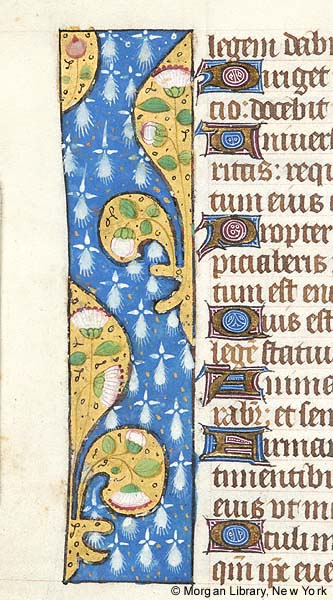 legem dabi
Diriget
cio: docebit
Univer
ritas: requi
tum eius
Propter
piciaberis
tum est en
Quis est
legē statu
Anime
rabit: et sem
Firmam
timentibu
eius ut m
Oculi m
qm̄ ipē eue
© Morgan Library, New York